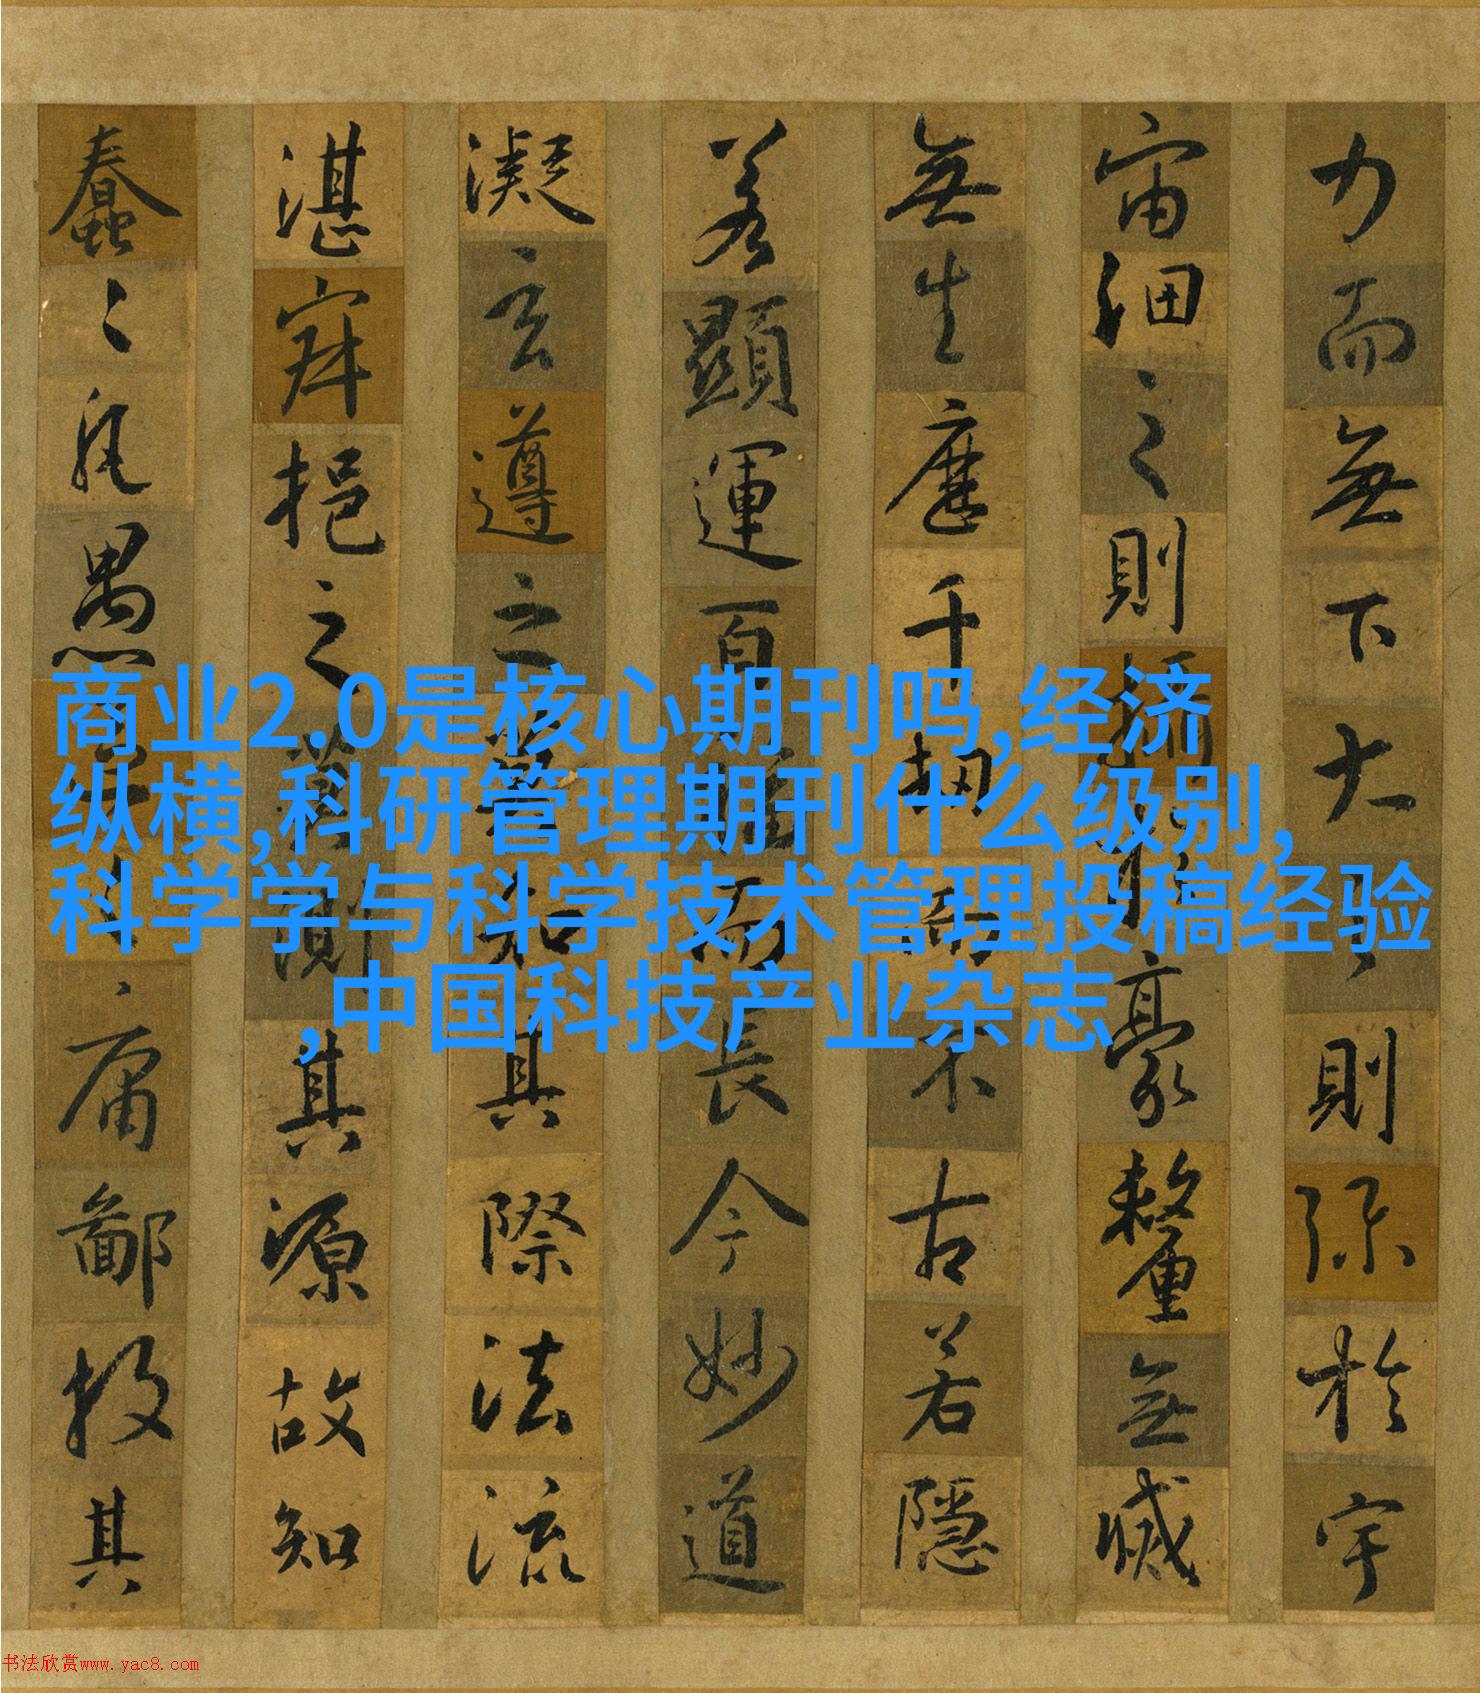 力而無下大之則弥於宇
宙細之則攝於豪釐無滅
無生歷千劫而不古若隱
若顯運百福而長今妙道
凝玄遵之莫知其際法流
湛寂挹之莫測其源故知
蠢々凡愚區々庸鄙投其
商业2.0是核心期刊吗,经济
纵横,科研管理期刊什么级别,
科学学与科学技术管理投稿经验
,中国科技产业杂志
书法欣赏www.yac8.com